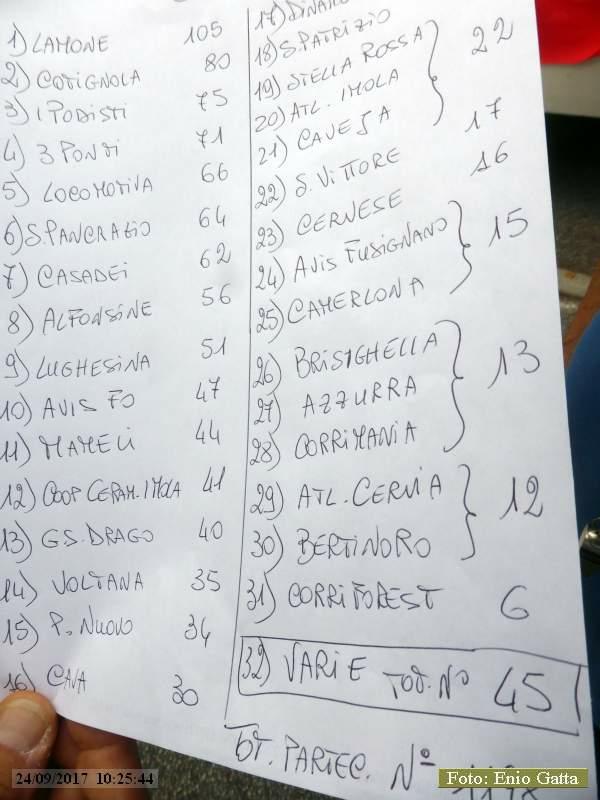 1) LAMONE 105
2) COTIGNOLA 80
3) I PODISTI 75
4) 3 PONTI 71
5) LOCOMOTIVA 66
6) S. PANCRAZIO 64
7) CASADEI 62
8) ALFONSINE 56
9) LUGHESINA 51
10) AVIS FO 47
11) MAMELI 44
12) COOP CERAM. IMOLA 41
13) GS. DRAGO 40
14) VOLTANA 35
15) P. NUOVO 34
16) CAVA 30
17)
18) S. PATRIZIO
19) STELLA ROSSA 22
20) ATL. IMOLA
21) CAVEJA
22) S. VITTORE 17
23) CERVESE 16
24) AVIS FUSIGNANO 15
25) CAMERLONA
26) BRISIGHELLA
27) AZZURRA 13
28) CORRIMANIA
29) ATL. CERVIA 12
30) BERTINORO
31) CORRIFOREST 6
32) VARIE TOT. N° 45
TOT. PARTEC. N°
24/09/2017 10:25:44
Foto: Enio Gatta